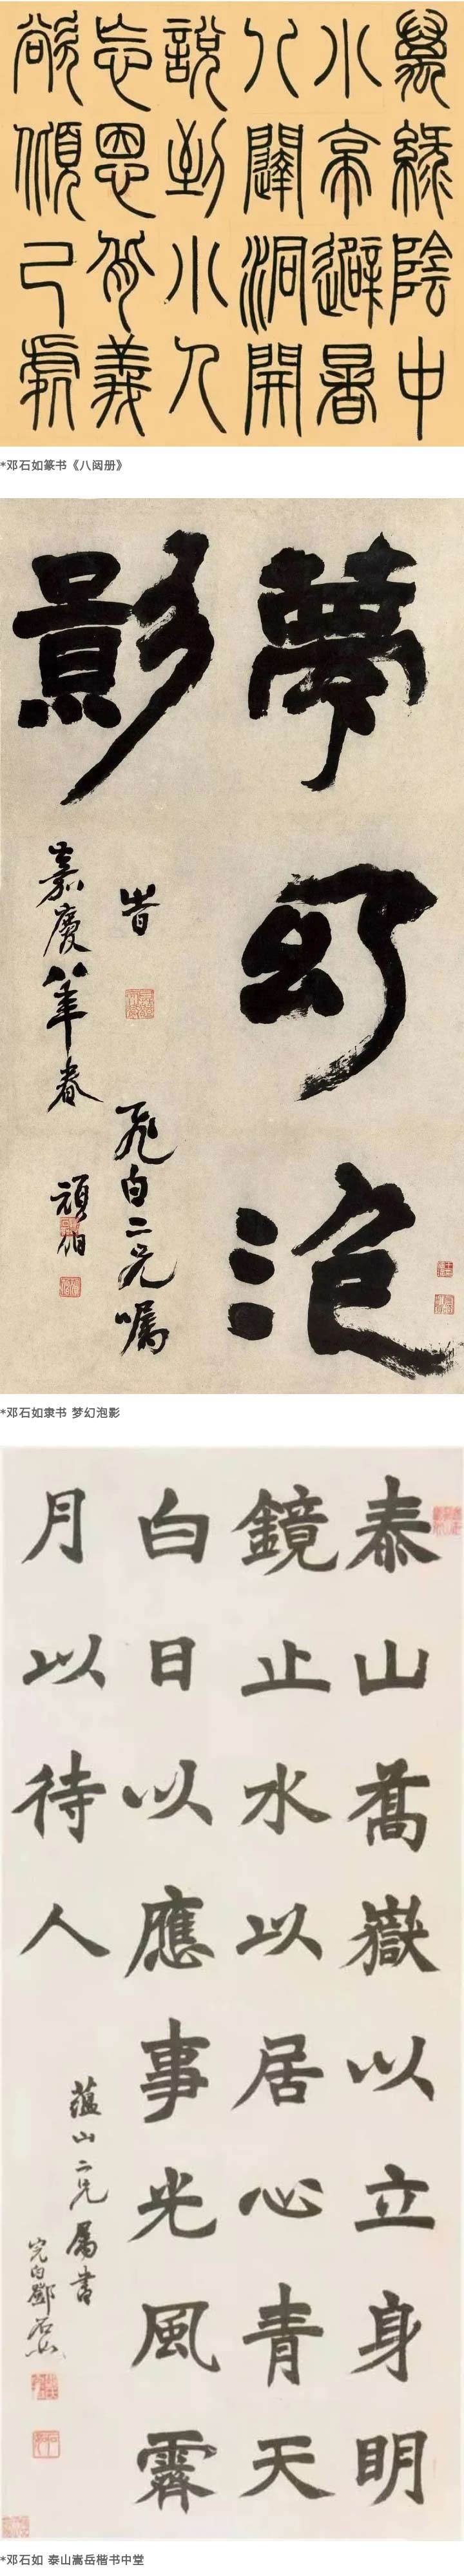 萬綠陰中
小亭避暑
八闥洞開
說到小人
忘恩背義
欲傾己處
*邓石如篆书《八闼册》
夢幻泡
影
旹 飛白二兄囑
嘉慶八年春 頑伯
*邓石如隶书 梦幻泡影
泰山喬嶽以立身明
鏡止水以居心青天
白日以應事光風霽
月以待人
蘊山二兄屬書
完白鄧石如
*邓石如 泰山嵩岳楷书中堂